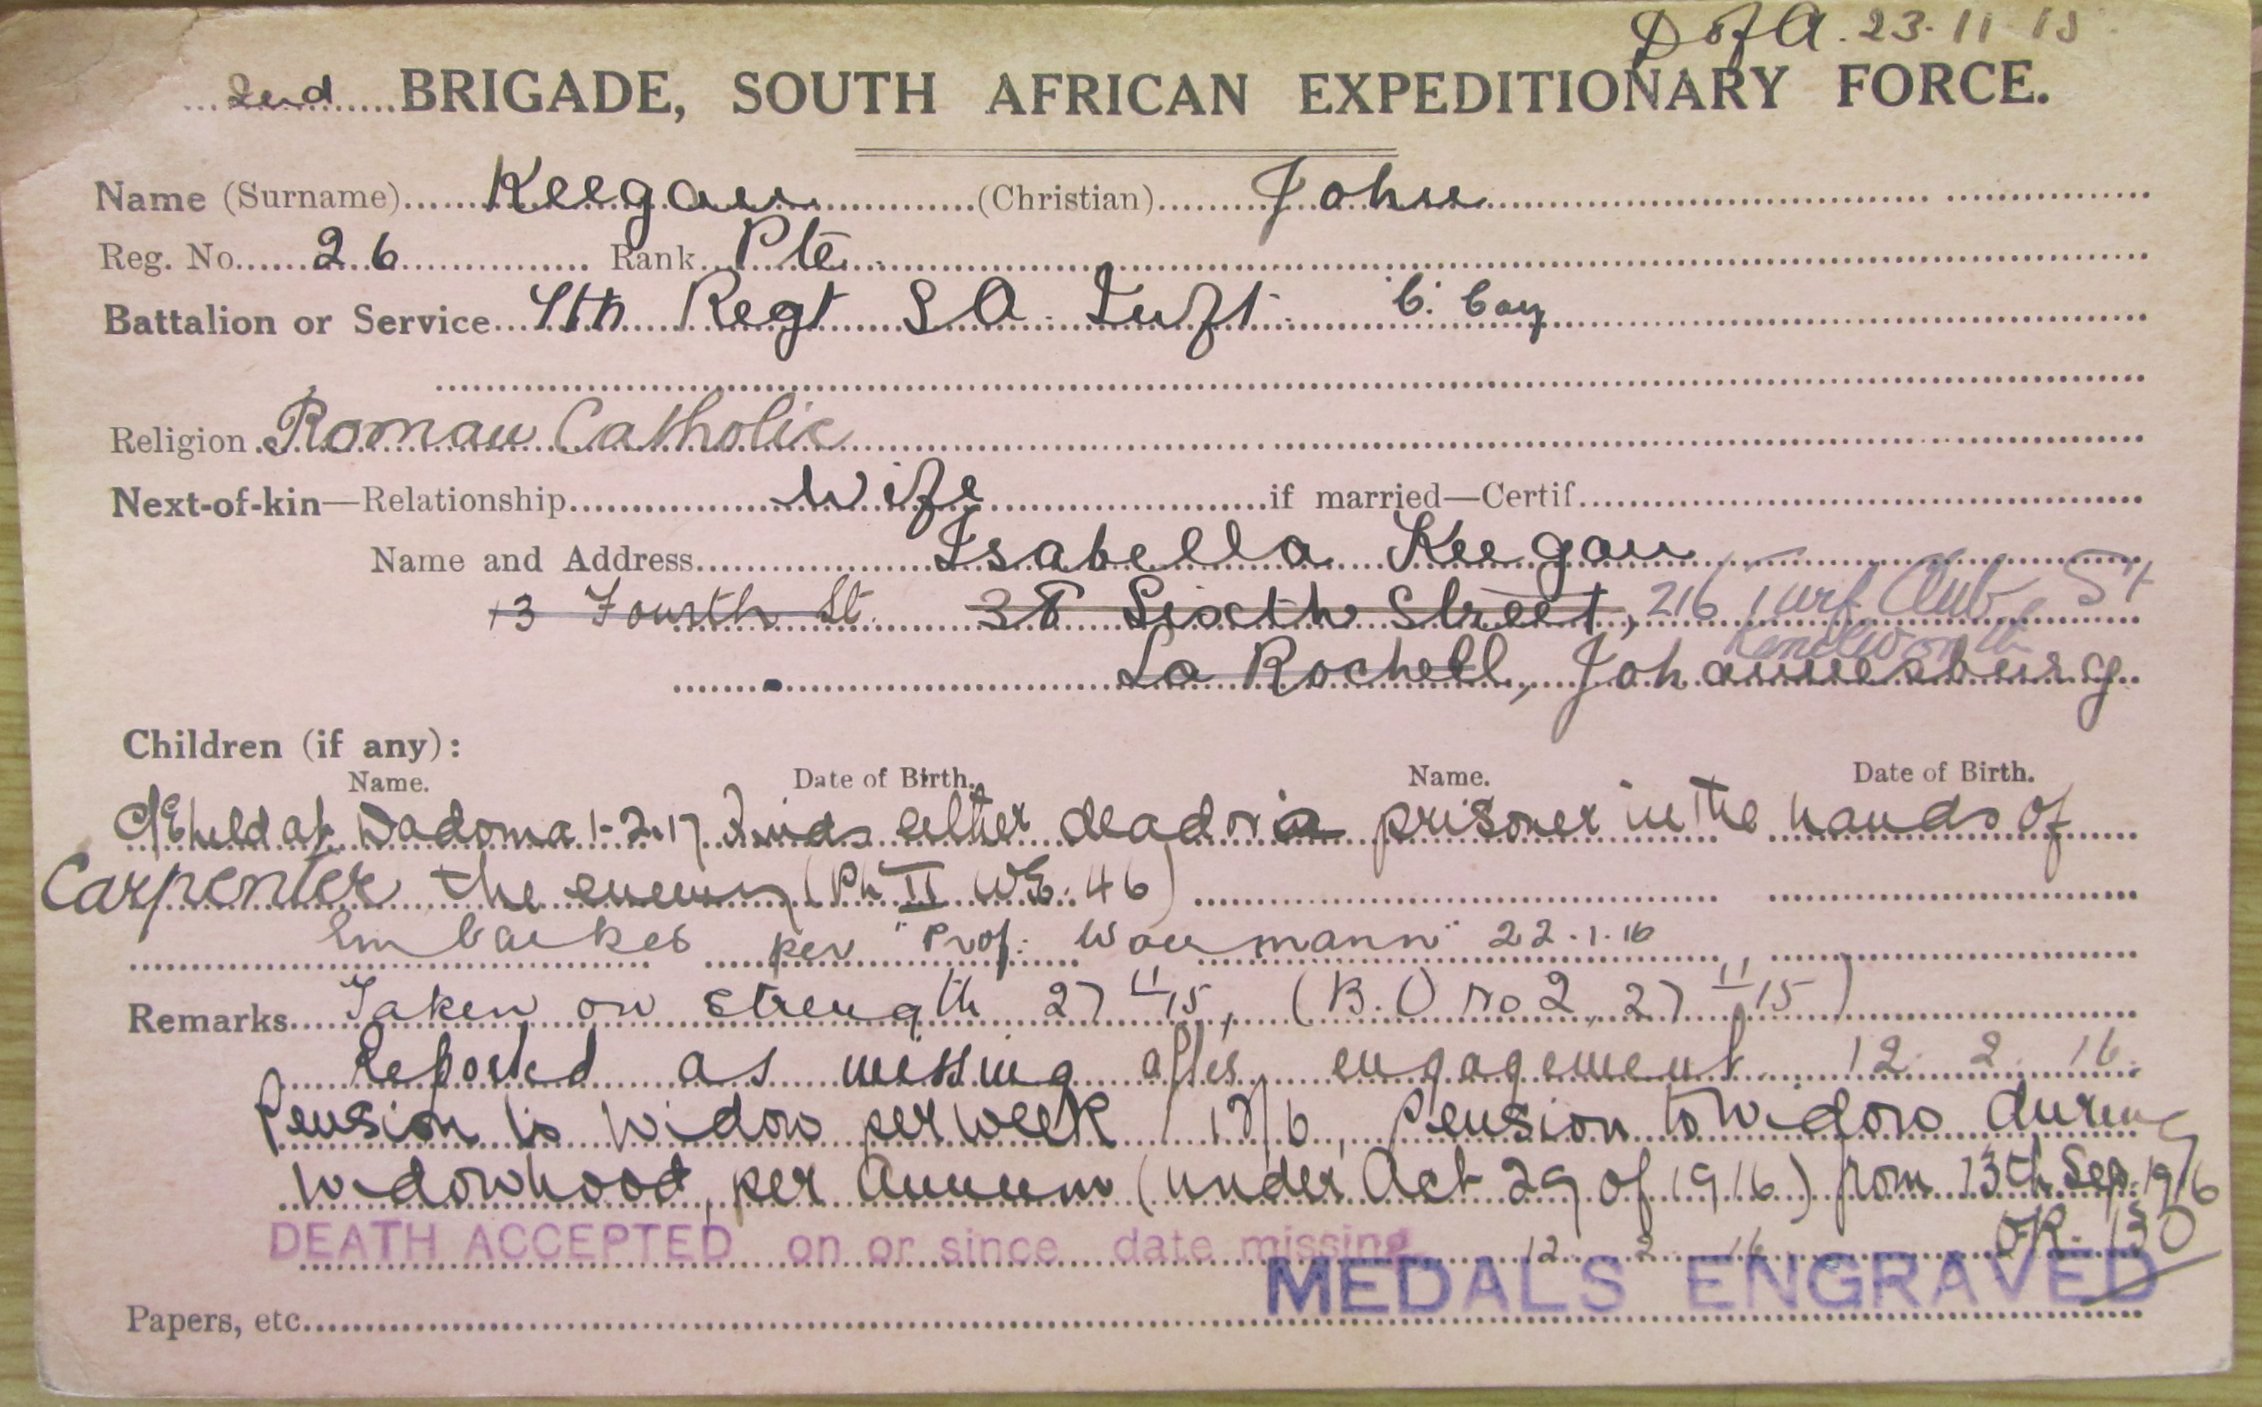 D of A. 23.11.15.
2nd BRIGADE, SOUTH AFRICAN EXPEDITIONARY FORCE.
Name (Surname) Keegan (Christian) John
Reg. No. 26 Rank Pte.
Battalion or Service 7th Regt S A Inft. "C" Coy
Religion Roman Catholic
Next-of-kin—Relationship Wife if married—Certif.
Name and Address Isabella Keegan
13 Fourth St. 38 Sixth Street, 216 Turf Club St
Kenilworth
La Rochell, Johannesburg
Children (if any):
Name. Date of Birth. Name. Date of Birth.
C/E held at Dadoma 1-2-17 Finds either dead or a prisoner in the hands of
Carpenter the enemy (Ph II WE. 46)
Embarked per "Prof. Woermann" 22.1.16
Remarks Taken on strength 27 11/15, (B.O no 2, 27 11/15)
Reported as missing after engagement 12 2 16.
Pension to Widow per week 17/6, Pension to Widow during
Widowhood, per Annum (under Act 29 of 1916) from 13th Sep. 1916
DEATH ACCEPTED on or since date missing 12 2 16
OR. 130
MEDALS ENGRAVED
Papers, etc.